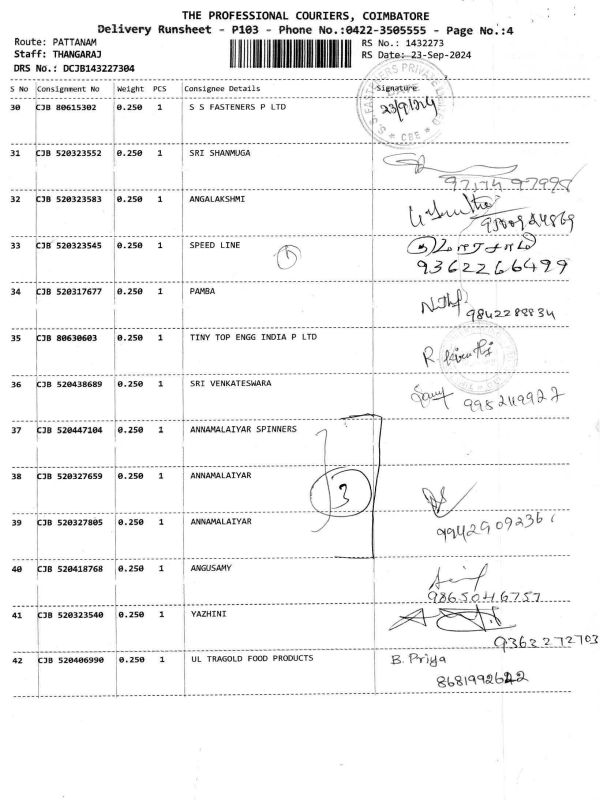 THE PROFESSIONAL COURIERS, COIMBATORE
Delivery Runsheet - P103 - Phone No.:0422-3505555 - Page No.:4
Route: PATTANAM
RS No.: 1432273
Staff: THANGARAJ
RS Date: 23-Sep-2024
DRS No.: DCJB143227304
S No Consignment No Weight PCS Consignee Details Signature
30 CJB 80615302 0.250 1 S S FASTENERS P LTD 23/9/24
31 CJB 520323552 0.250 1 SRI SHANMUGA
32 CJB 520323583 0.250 1 ANGALAKSHMI
33 CJB 520323545 0.250 1 SPEED LINE 1
9362266499
34 CJB 520317677 0.250 1 PAMBA
9842288834
35 CJB 80630603 0.250 1 TINY TOP ENGG INDIA P LTD
36 CJB 520438689 0.250 1 SRI VENKATESWARA
37 CJB 520447104 0.250 1 ANNAMALAIYAR SPINNERS
38 CJB 520327659 0.250 1 ANNAMALAIYAR 3
39 CJB 520327805 0.250 1 ANNAMALAIYAR
40 CJB 520418768 0.250 1 ANGUSAMY
9865046757
41 CJB 520323540 0.250 1 YAZHINI
9362272703
42 CJB 520406990 0.250 1 UL TRAGOLD FOOD PRODUCTS B. Priya
8681992622